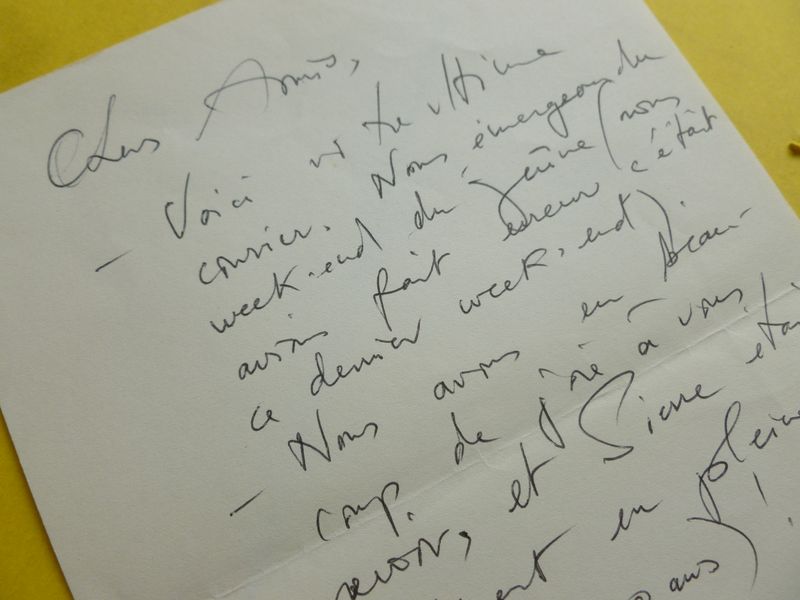 Chers Amis,
– Voici votre ultime
courrier. Nous émergeons du
week-end du Jeûne (nous
avions fait erreur c'était
ce dernier week-end).
– Nous avons eu beau-
coup de joie à vous
revoir, et Sierre était
en pleine
ans) !